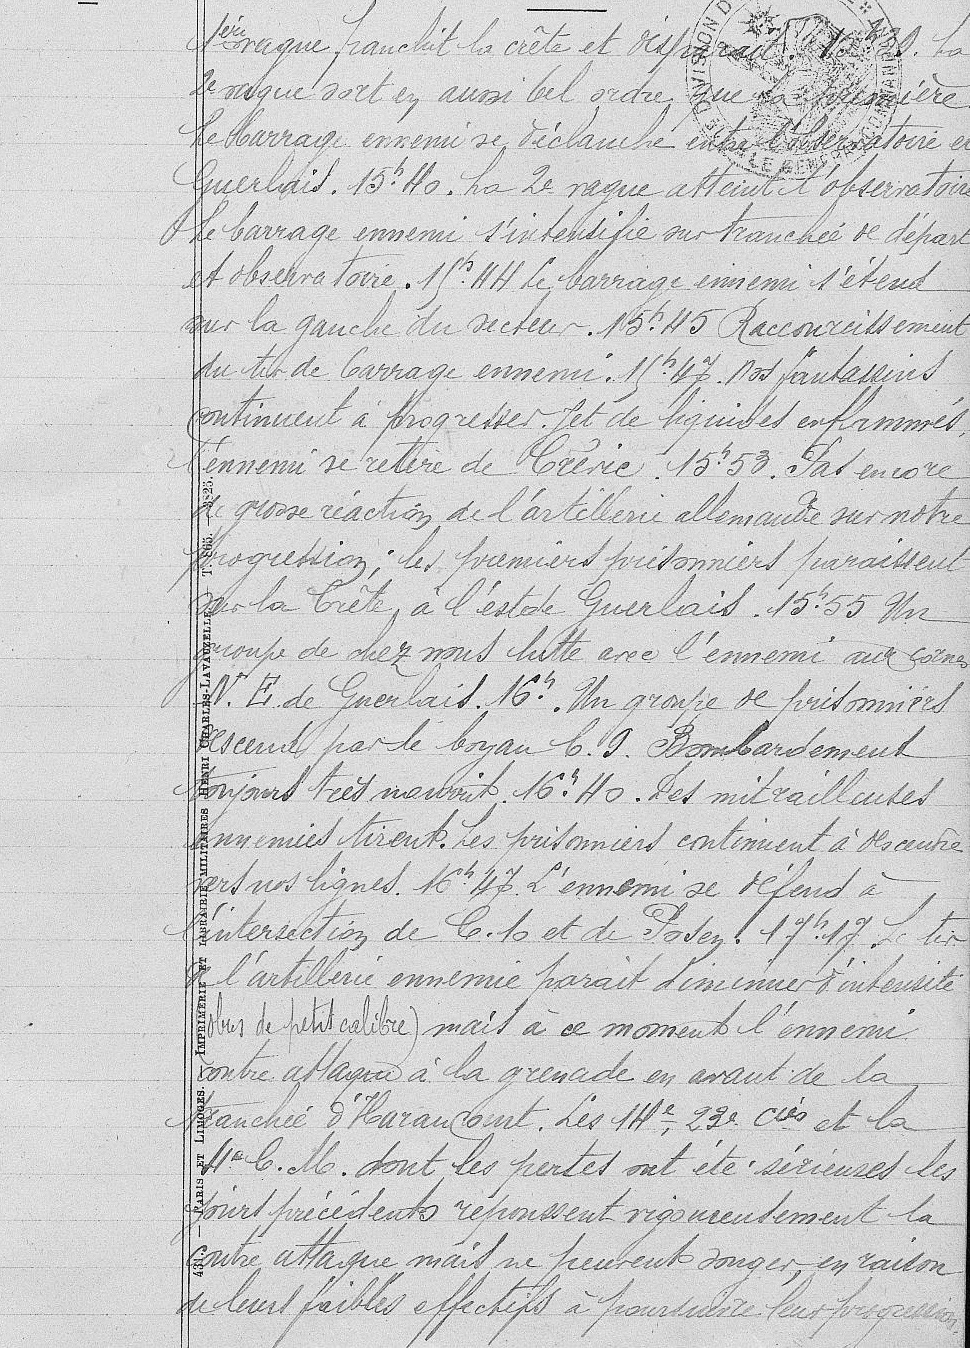 1ère vague franchit la crête et disparait. 15h39. La
2e vague sort en aussi bel ordre que la première
Le barrage ennemi se déclanche entre l'observatoire et
Guerlais. 15h40. La 2e vague atteint l'observatoire
Le barrage ennemi s'intensifie sur tranchée de départ
et observatoire. 15h44 Le barrage ennemi s'étend
sur la gauche du secteur. 15h45 Raccourcissement
du tir de barrage ennemi. 15h47. Nos fantassins
continuent à progresser. Jet de liquides enflammés,
l'ennemi se retire de Crévic. 15h53. Pas encore
de grosse réaction de l'artillerie allemande sur notre
progression; les premiers prisonniers paraissent
sur la Crête, à l'est de Guerlais. 15h55 Un
groupe de chez nous lutte avec l'ennemi aux cornes
N. E. de Guerlais. 16h. Un groupe de prisonniers
descend par le boyau C. 9. Bombardement
toujours très nourrit. 16h40. Des mitrailleuses
ennemies tirent. Les prisonniers continuent à descendre
vers nos lignes. 16h47. L'ennemi se défend à
l'intersection de C. 10 et de Posen. 17h17 Le tir
de l'artillerie ennemie parait diminuer d'intensité
(obus de petit calibre) mais à ce moment l'ennemi
contre attaque à la grenade en avant de la
tranchée d'Haraucourt. Les 14e, 23e Cies et la
4e C. M. dont les pertes ont été sérieuses les
jours précédents repoussent vigoureusement la
contre attaque mais ne peuvent songer, en raison
de leurs faibles effectifs à poursuivre leur progression.
431. — PARIS ET LIMOGES. IMPRIMERIE ET LIBRAIRIE MILITAIRES HENRI CHARLES-LAVAUZELLE.